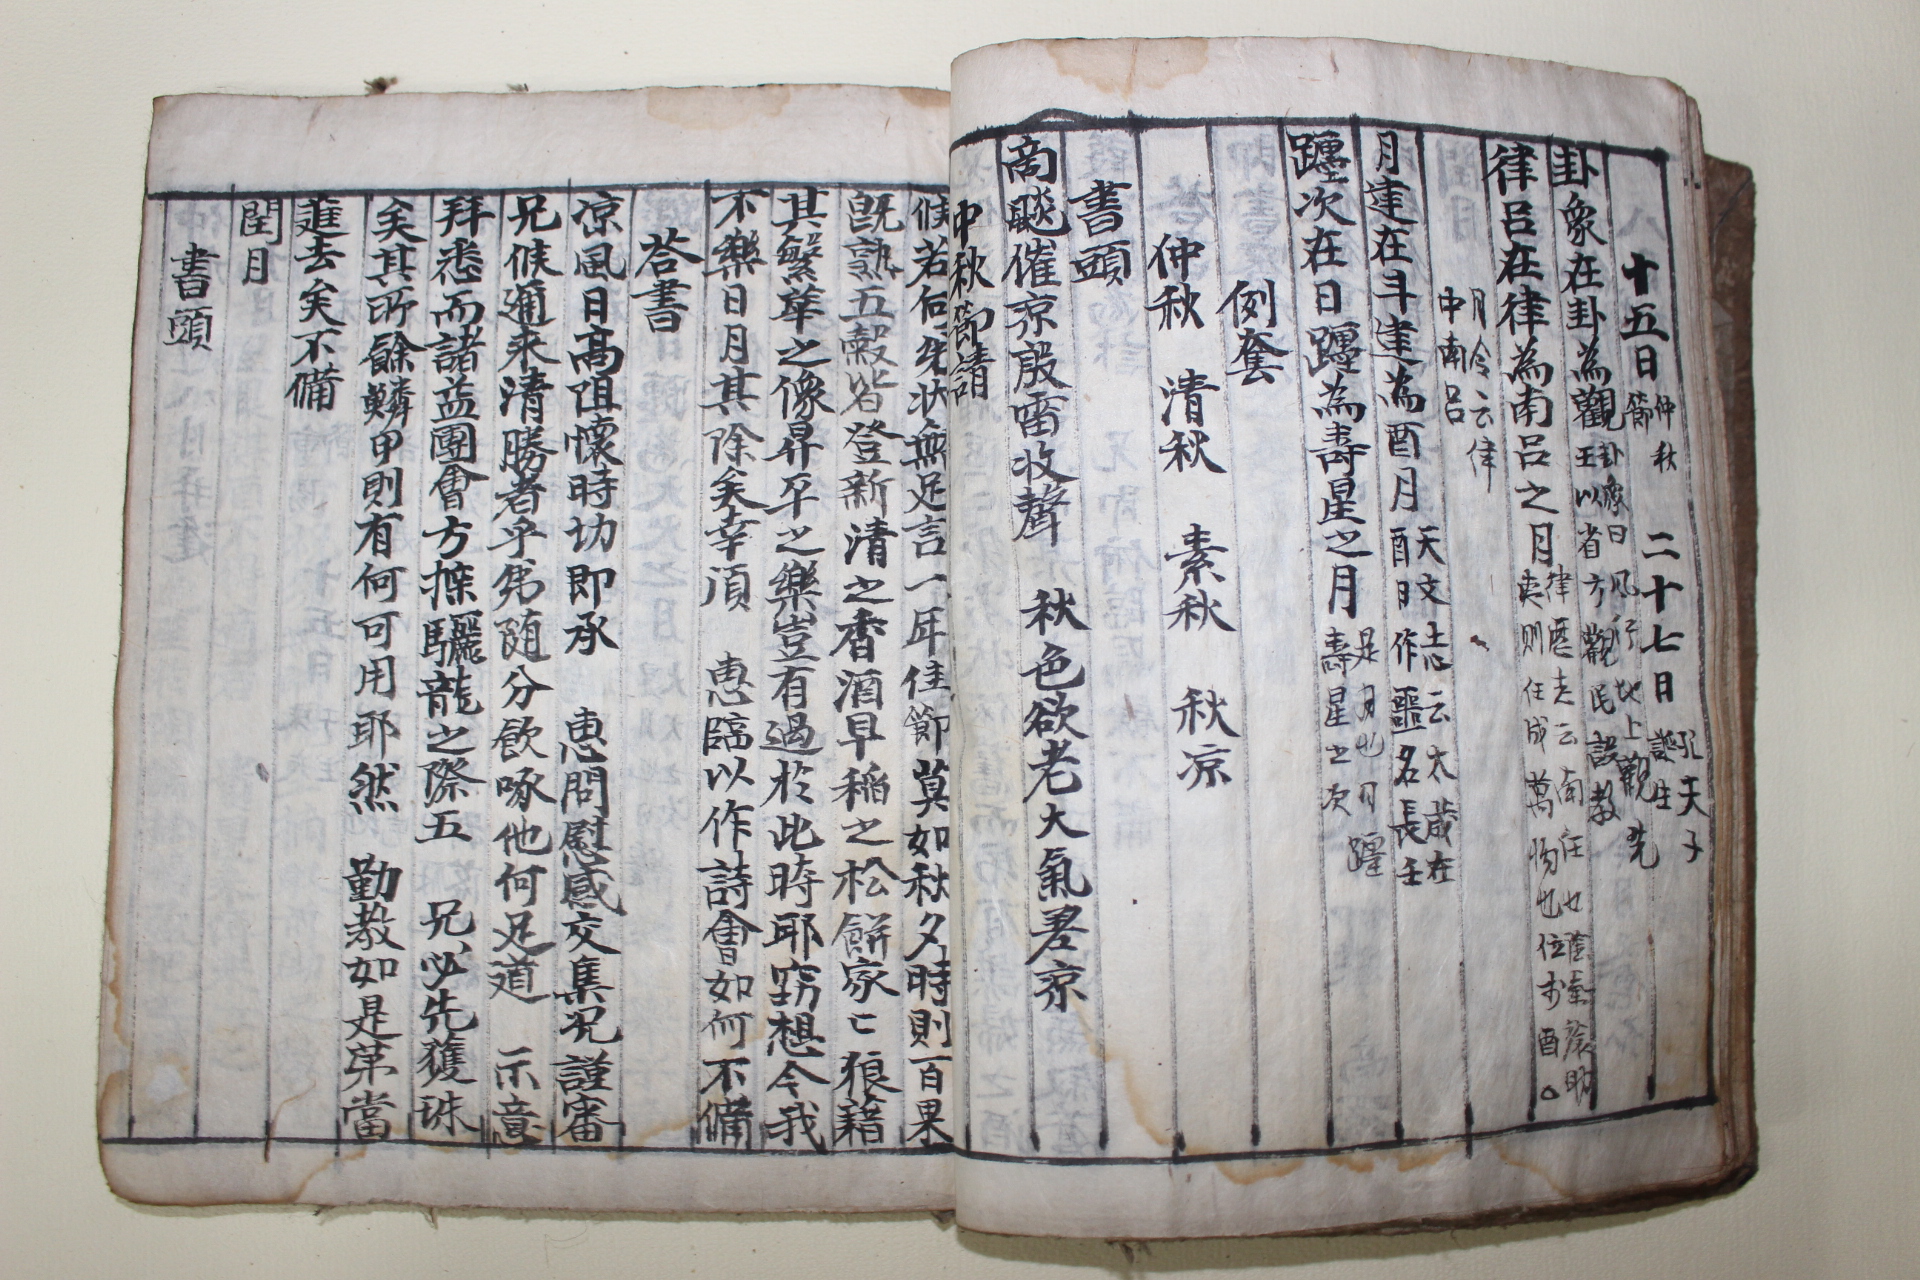 十五日 仲秋節 二十七日 孔夫子誕生
卦象在卦為觀 卦象曰風行地上觀先王以省方觀民設教
律呂在律為南呂之月 律歷志云南任也陰氣旅助夷則任成萬物也位於酉
月令云律中南呂
月建在斗建為酉月 天文志云太歲在酉日作噩名長壬
躔次在日躔為壽星之月 是月也日躔壽星之次
例套
仲秋 清秋 素秋 秋凉
書頭
商飈催凉殷雷收聲 秋色欲老大氣署凉
中秋節請
候若何弟狀無足言一年佳節莫如秋夕時則百果
既熟五穀皆登新清之香酒早稻之松餅家亡狼藉
其繁華之像昇平之樂豈有過於此時耶窃想今我
不樂日月其除矣幸須 惠臨以作詩會如何不備
答書
凉風日高阻懷時切即承 惠問慰感交集况謹審
兄候邇來清勝者乎弟随分飲啄他何足道 示意
拜悉而諸益團會方採驪龍之際五 兄必先獲珠
矣其所餘鱗甲則有何可用耶然 勤教如是第當
進去矣不備
閏月
書頭